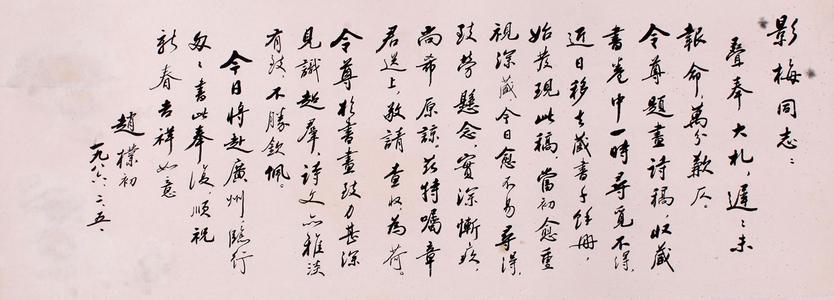 影梅同志：
疊奉大札，遲遲未
報命，萬分歉仄。
令尊題畫詩稿，收藏
書卷中一時尋覓不得，
近日移去藏書手餘冊，
始發現此稿，當初愈重
視深藏，今日愈不易尋得，
致勞懸念，實深慚疚，
尚希原諒，茲特囑章
君送上，敬請查收為荷。
令尊於書畫致力甚深
見識超群，詩文亦雅淡
有致，不勝欽佩。
今日將赴廣州，臨行
匆匆書此奉復，順祝
新春吉祥如意
趙樸初
一九八六、二、五、